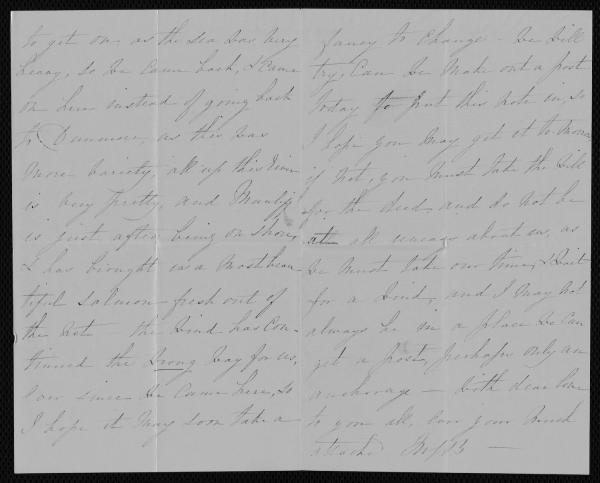 to get on, as the sea was very
heavy, so we came back, & came
on here instead of going back
to Dunmore, as this was
more variety, all up this river
is very pretty, and Manly
is just after being on shore,
& has brought us a most beau-
tiful salmon fresh out of
the net — the wind has con-
tinued the wrong way for us,
ever since we came here, so
I hope it may soon take a
fancy to change — we will
try, can we make out a post
today to put this note in, so
I hope you may get it to-morrow
if not, you must take the will
for the deed, and do not be
at all uneasy about us, as
we must take our time, & wait
for a wind, and I may not
always be in a place we can
get a post, perhaps only an
anchorage — with dear love
to you all, ever your much
attached